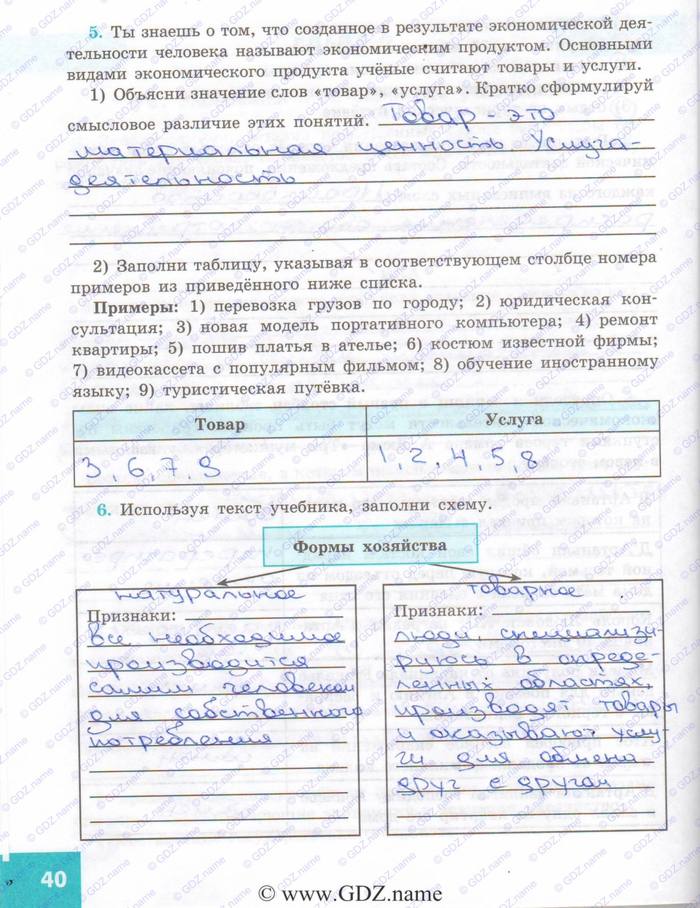 5. Ты знаешь о том, что созданное в результате экономической дея-
тельности человека называют экономическим продуктом. Основными
видами экономического продукта учёные считают товары и услуги.
1) Объясни значение слов «товар», «услуга». Кратко сформулируй
смысловое различие этих понятий. Товар - это
материальная ценность Услуга-
деятельность
2) Заполни таблицу, указывая в соответствующем столбце номера
примеров из приведённого ниже списка.
Примеры: 1) перевозка грузов по городу; 2) юридическая кон-
сультация; 3) новая модель портативного компьютера; 4) ремонт
квартиры; 5) пошив платья в ателье; 6) костюм известной фирмы;
7) видеокассета с популярным фильмом; 8) обучение иностранному
языку; 9) туристическая путёвка.
Товар
Услуга
3, 6, 7, 9
1, 2, 4, 5, 8
6. Используя текст учебника, заполни схему.
Формы хозяйства
натуральное
Признаки:
все необходимое
производится
самим человеком
для собственного
потребления
товарное
Признаки:
люди, специализи-
руюсь в опреде-
ленных областях,
производят товары
и оказывают услу-
ги для обмена
друг с другом
40
© www.GDZ.name
© GDZ.name